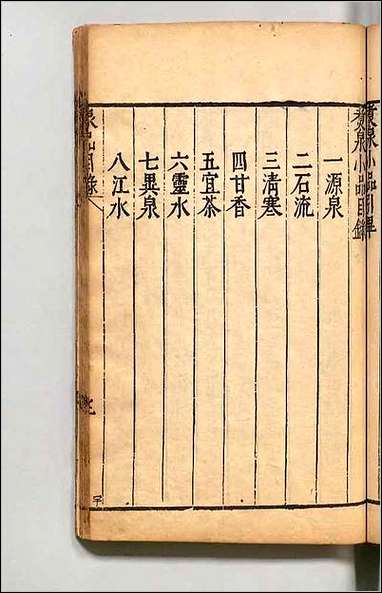 煮泉小品引畢
煮泉小品目錄
一源泉
二石流
三清寒
四甘香
五宜茶
六靈水
七異泉
八江水
泉品目錄